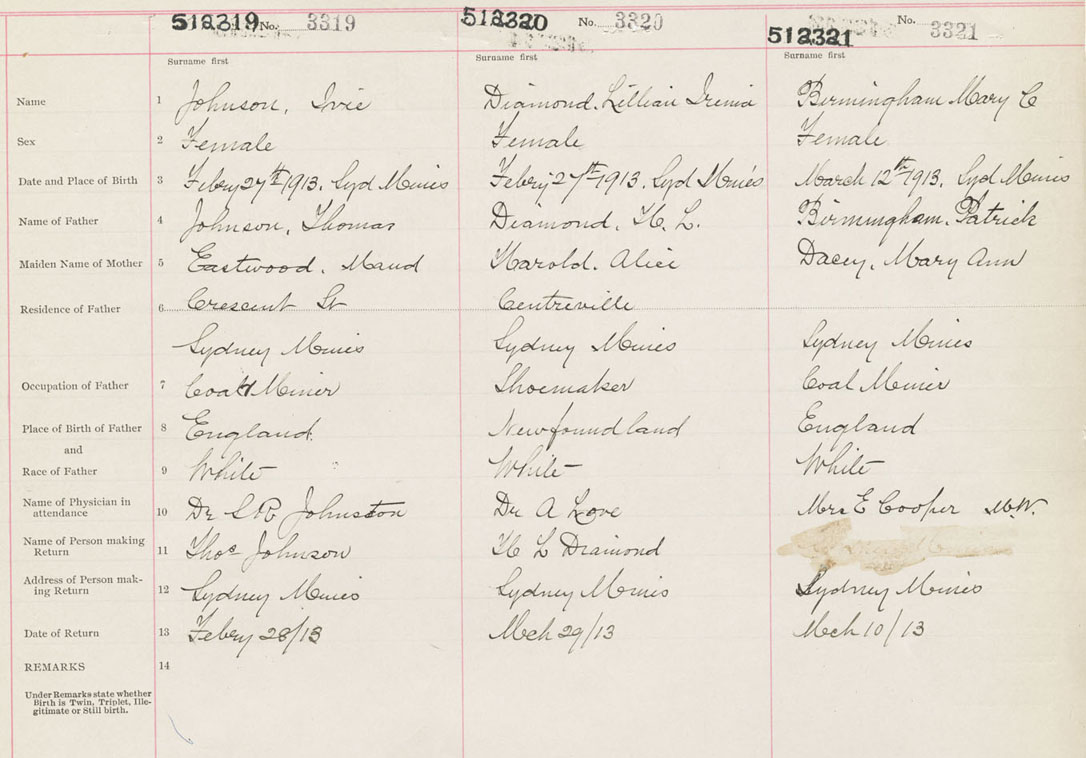 512319 No. 3319 512320 No. 3320 512321 No. 3321
Surname first Surname first Surname first
Name 1 Johnson, Ivie Diamond. Lillian Irenia Birmingham Mary C
Sex 2 Female Female Female
Date and Place of Birth 3 Febry 27th 1913. Syd Mines Febry 27th 1913. Syd Mines March 12th 1913. Syd Mines
Name of Father 4 Johnson, Thomas Diamond, H. L. Birmingham. Patrick
Maiden Name of Mother 5 Eastwood. Maud Harold. Alice Dacey, Mary Ann
Residence of Father 6 Crescent St Centreville
Sydney Mines Sydney Mines Sydney Mines
Occupation of Father 7 Coal Miner Shoemaker Coal Miner
Place of Birth of Father 8 England. Newfoundland England
and
Race of Father 9 White White White
Name of Physician in
attendance 10 Dr Johnston Dr A Love Mrs E Cooper M.W.
Name of Person making
Return 11 Thos Johnson H L Diamond
Address of Person mak-
ing Return 12 Sydney Mines Sydney Mines Sydney Mines
Date of Return 13 Febry 28/13 Mch 29/13 Mch 10/13
REMARKS 14
Under Remarks state whether
Birth is Twin, Triplet, Ille-
gitimate or Still birth.